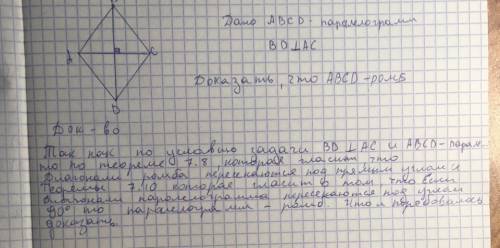 B
Дано ABCD - параллограмм
A
C
BD⊥AC
D
Доказать, что ABCD - ромб
Док-во
Так как по условию задачи BD⊥AC и ABCD - парам.
то по теореме 7.8, которая гласит что
диагонали ромба пересекаются под прямым углом и
Теоремы 7.10 которая гласит о том что если
диагонали параллограмма пересекаются под углом
90° то параллограмм - ромб. Что и требовалось
доказать.